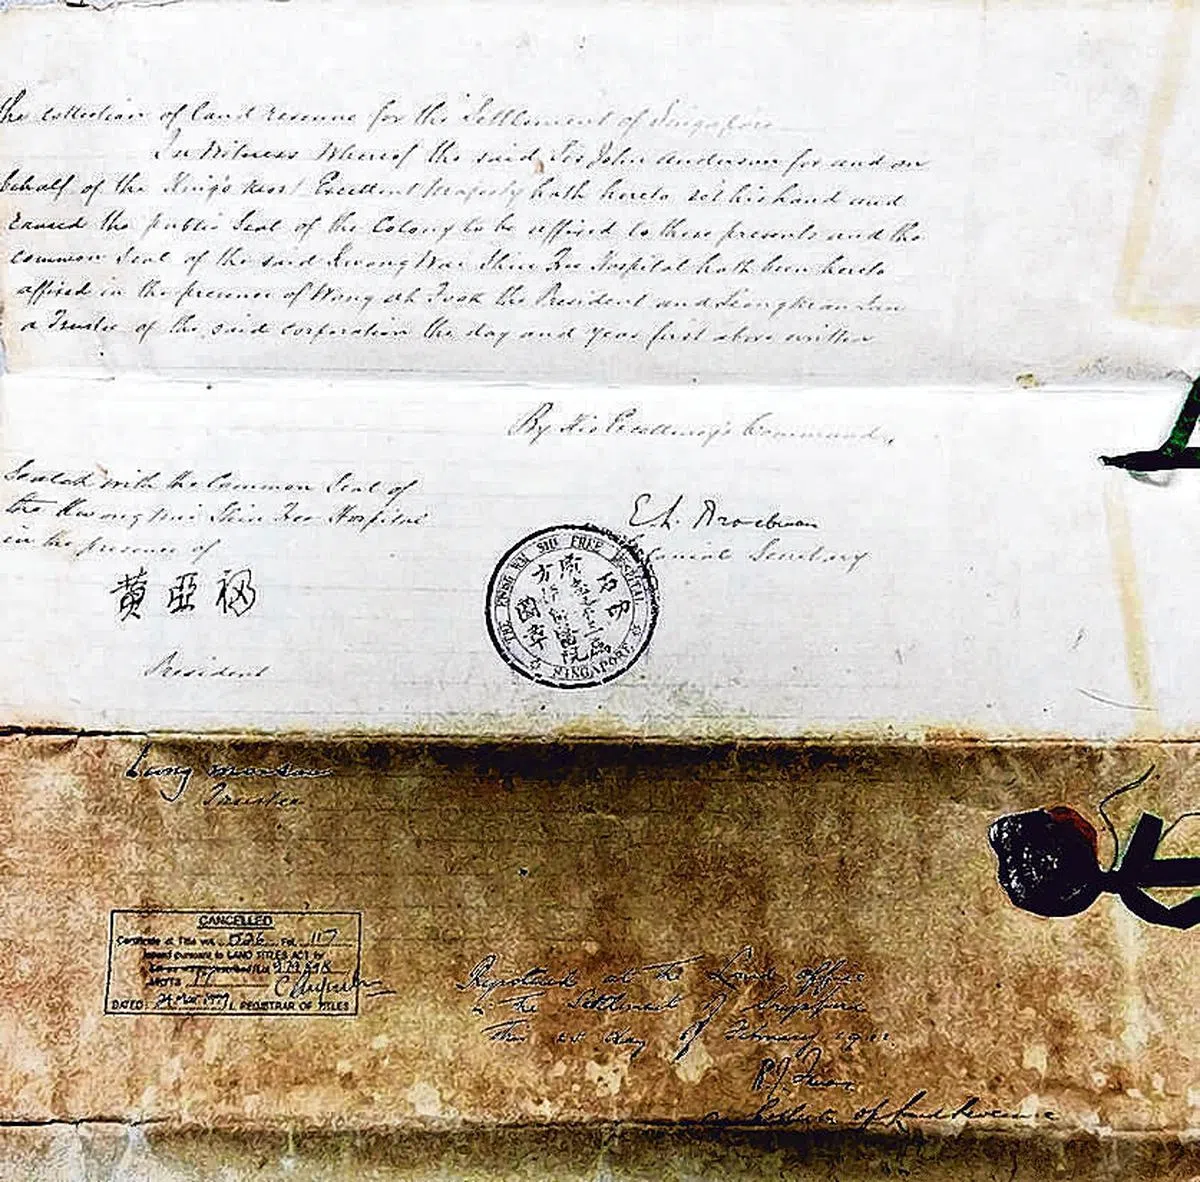 the collection of land revenue for the Settlement of Singapore
In Witness Whereof the said Sir John Anderson for and on
behalf of the King's Most Excellent Majesty hath hereto set his hand and
caused the public Seal of the Colony to be affixed to these presents and the
common Seal of the said Kwong Wai Shiu Free Hospital hath been hereto
affixed in the presence of Wong Ah Fook the President and
a Trustee of the said corporation the day and year first above written
By His Excellency's Command,
Sealed with the Common Seal of
the Kwong Wai Shiu Free Hospital
in the presence of
E.L. Brockman
Colonial Secretary
THE KWONG WAI SHIU FREE HOSPITAL OF SINGAPORE
黄亞福
President
Trustee
CANCELLED
Certificate of Title Vol. 526 Fol. 117
issued pursuant to LAND TITLES ACT for
DATED 24 Mar REGISTRAR OF TITLES
Registered at the Land Office
in the Settlement of Singapore
This day of February
Collector of Land Revenue